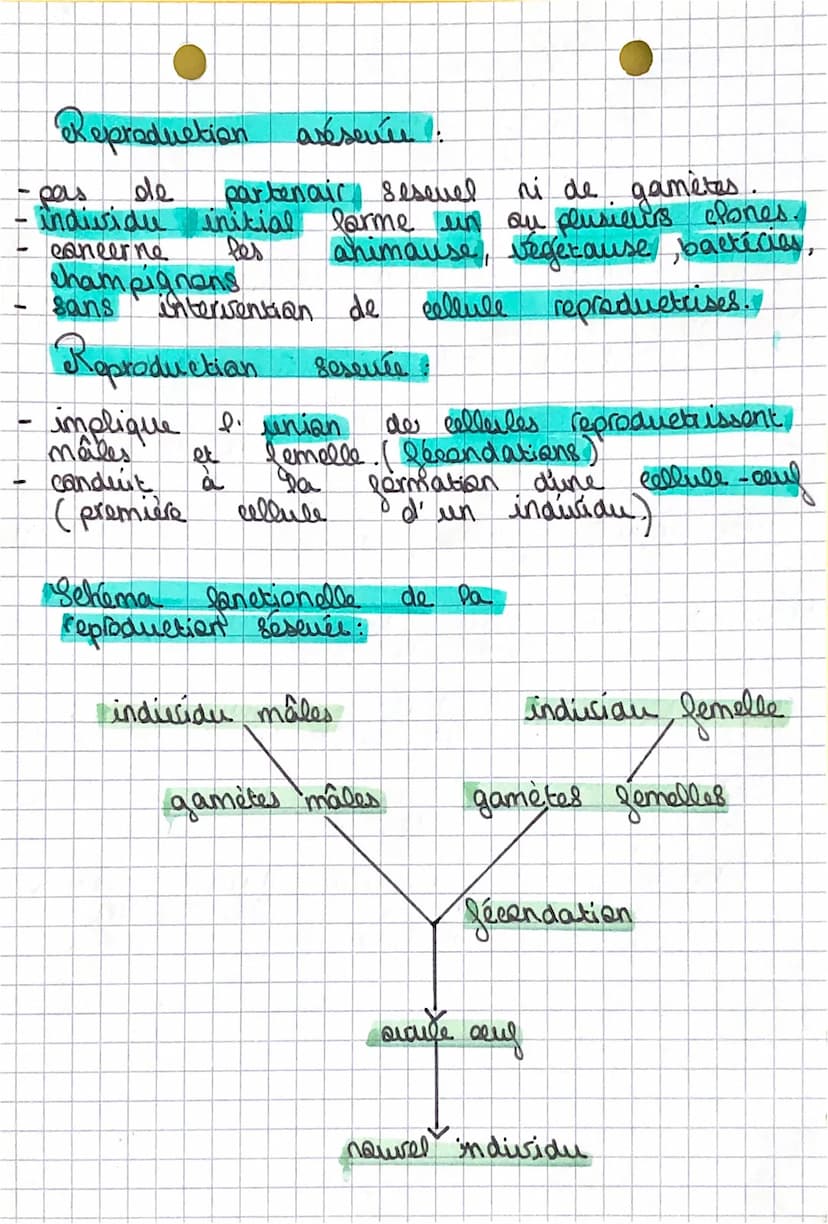 Reproduction aséxuée :
- pas de partenair sexuel ni de gamètes.
- individu initial forme un ou plusieurs clones.
- concerne les animause, végétause, bactéries,
champignons
- sans intervention de cellule reproductrises.
Reproduction sexuée :
- implique l' union des cellules reproductrissent
mâles et femelle. (fécondations)
- conduit à la formation d'une cellule-œuf
(première cellule d'un individu)
Schéma fonctionelle de la
reproduction séxuée :
individu mâles individu femelle
gamètes mâles gamètes femelles
fécondation
ovule œuf
nouvel individu